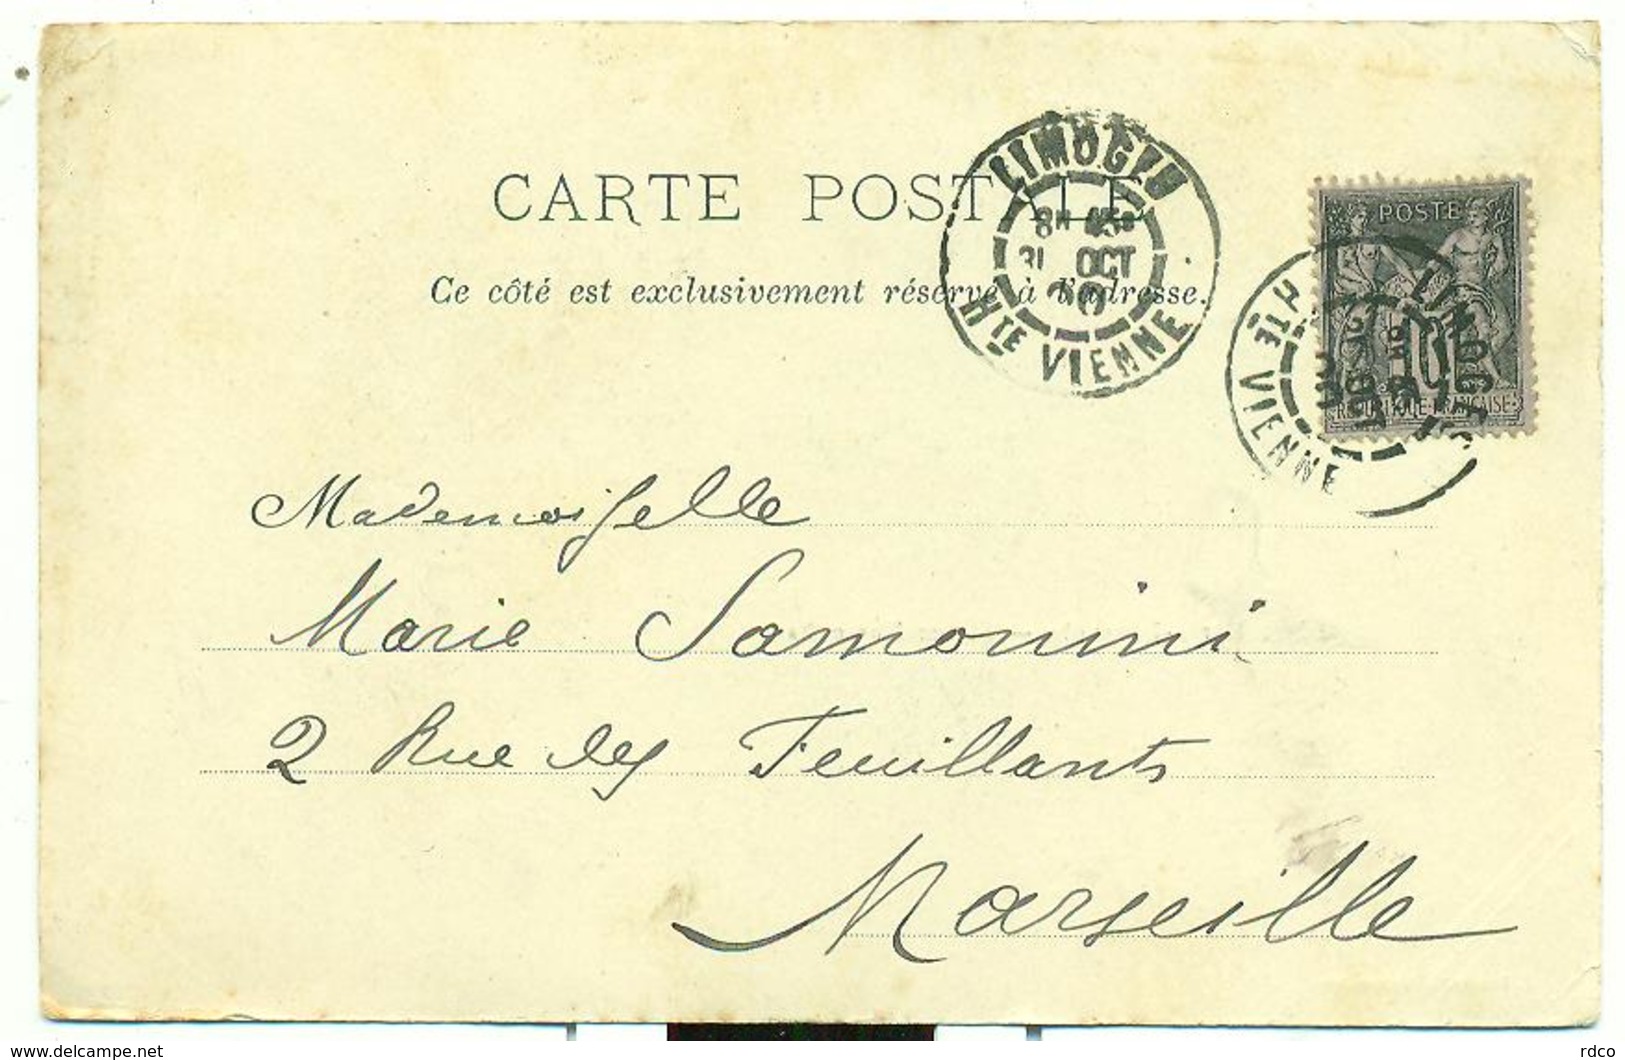 CARTE POSTALE
Ce côté est exclusivement réservé à l'adresse.
LIMOGES
8H 45
31 OCT
Hte VIENNE
POSTE
10
REPUBLIQUE FRANÇAISE
LIMOGES
Hte VIENNE
Mademoiselle
Marie Samonini
2 Rue des Feuillants
Marseille
www.delcampe.net
rdco